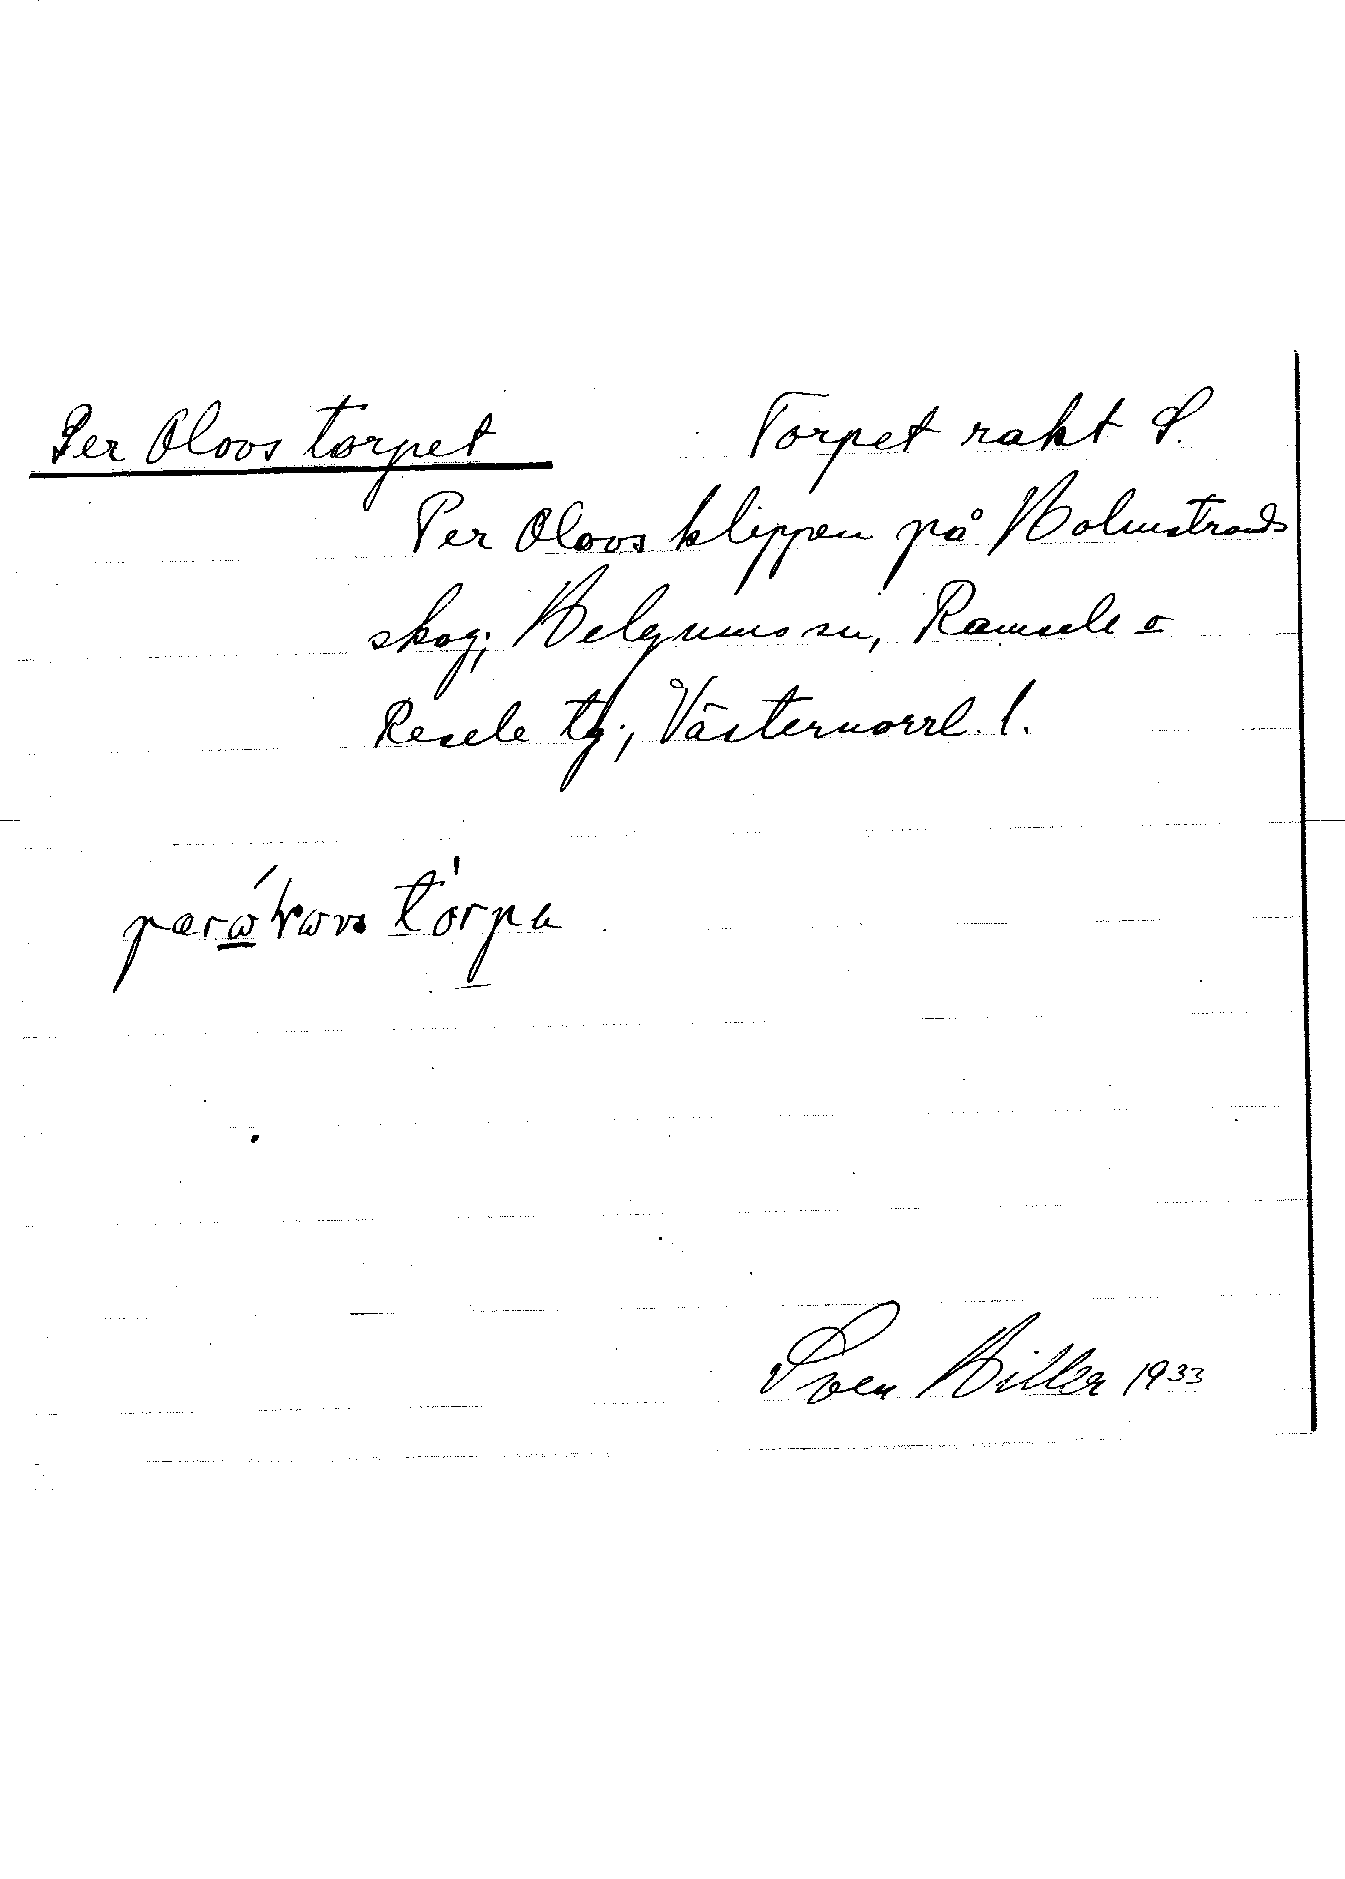 Per Olovs torpet Torpet rakt S.
Per Olovs klippen på Holmstrands
skog; Helgums sn, Ramsele o
Resele tg; Västernorrl. l.
Sven Hiller 1933